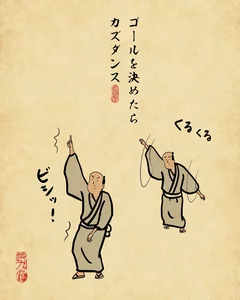 ゴールを決めたら
カズダンス
くるくる
ビシッ!